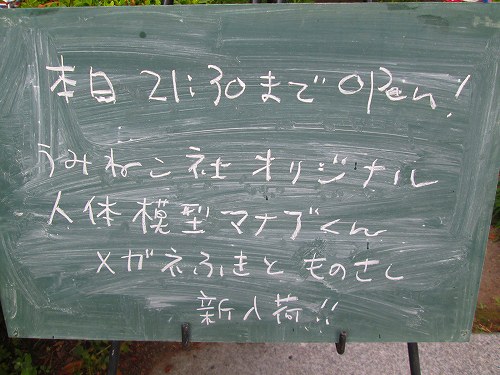 本日 21:30まで Open!
うみねこ社 オリジナル
人体模型マナブくん
メガネふきと ものさし
新入荷!!